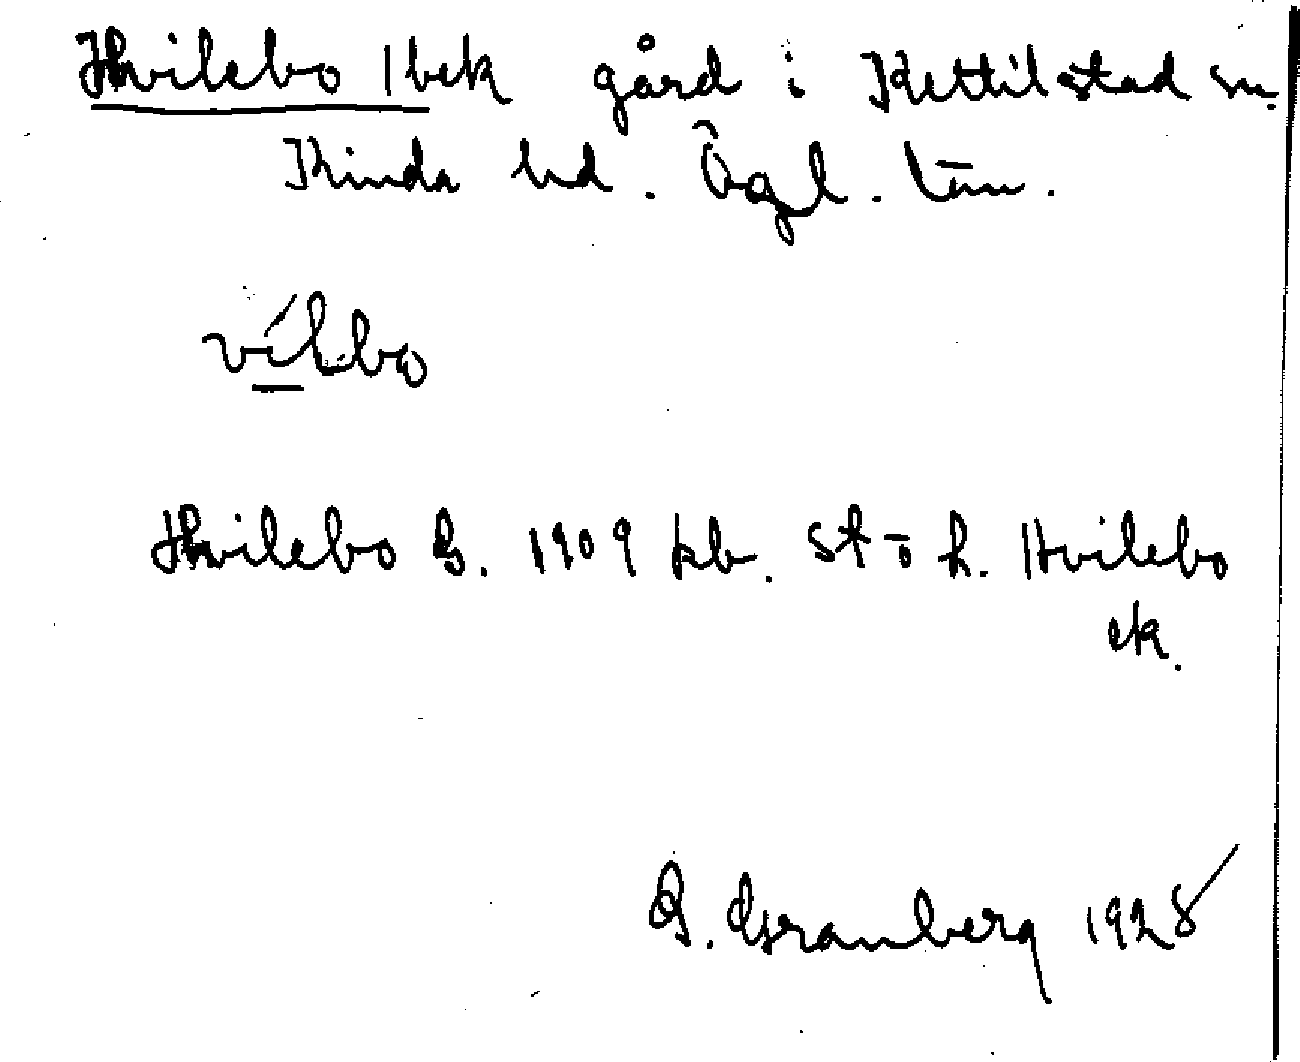 Hvilebo 1 bek gård i Kettilstad sn.
Kinda hd. Ögl. län.
vílbo
Hvilebo G. 1909 kb. st o h. Hvilebo
ek.
G. Granberg 1928